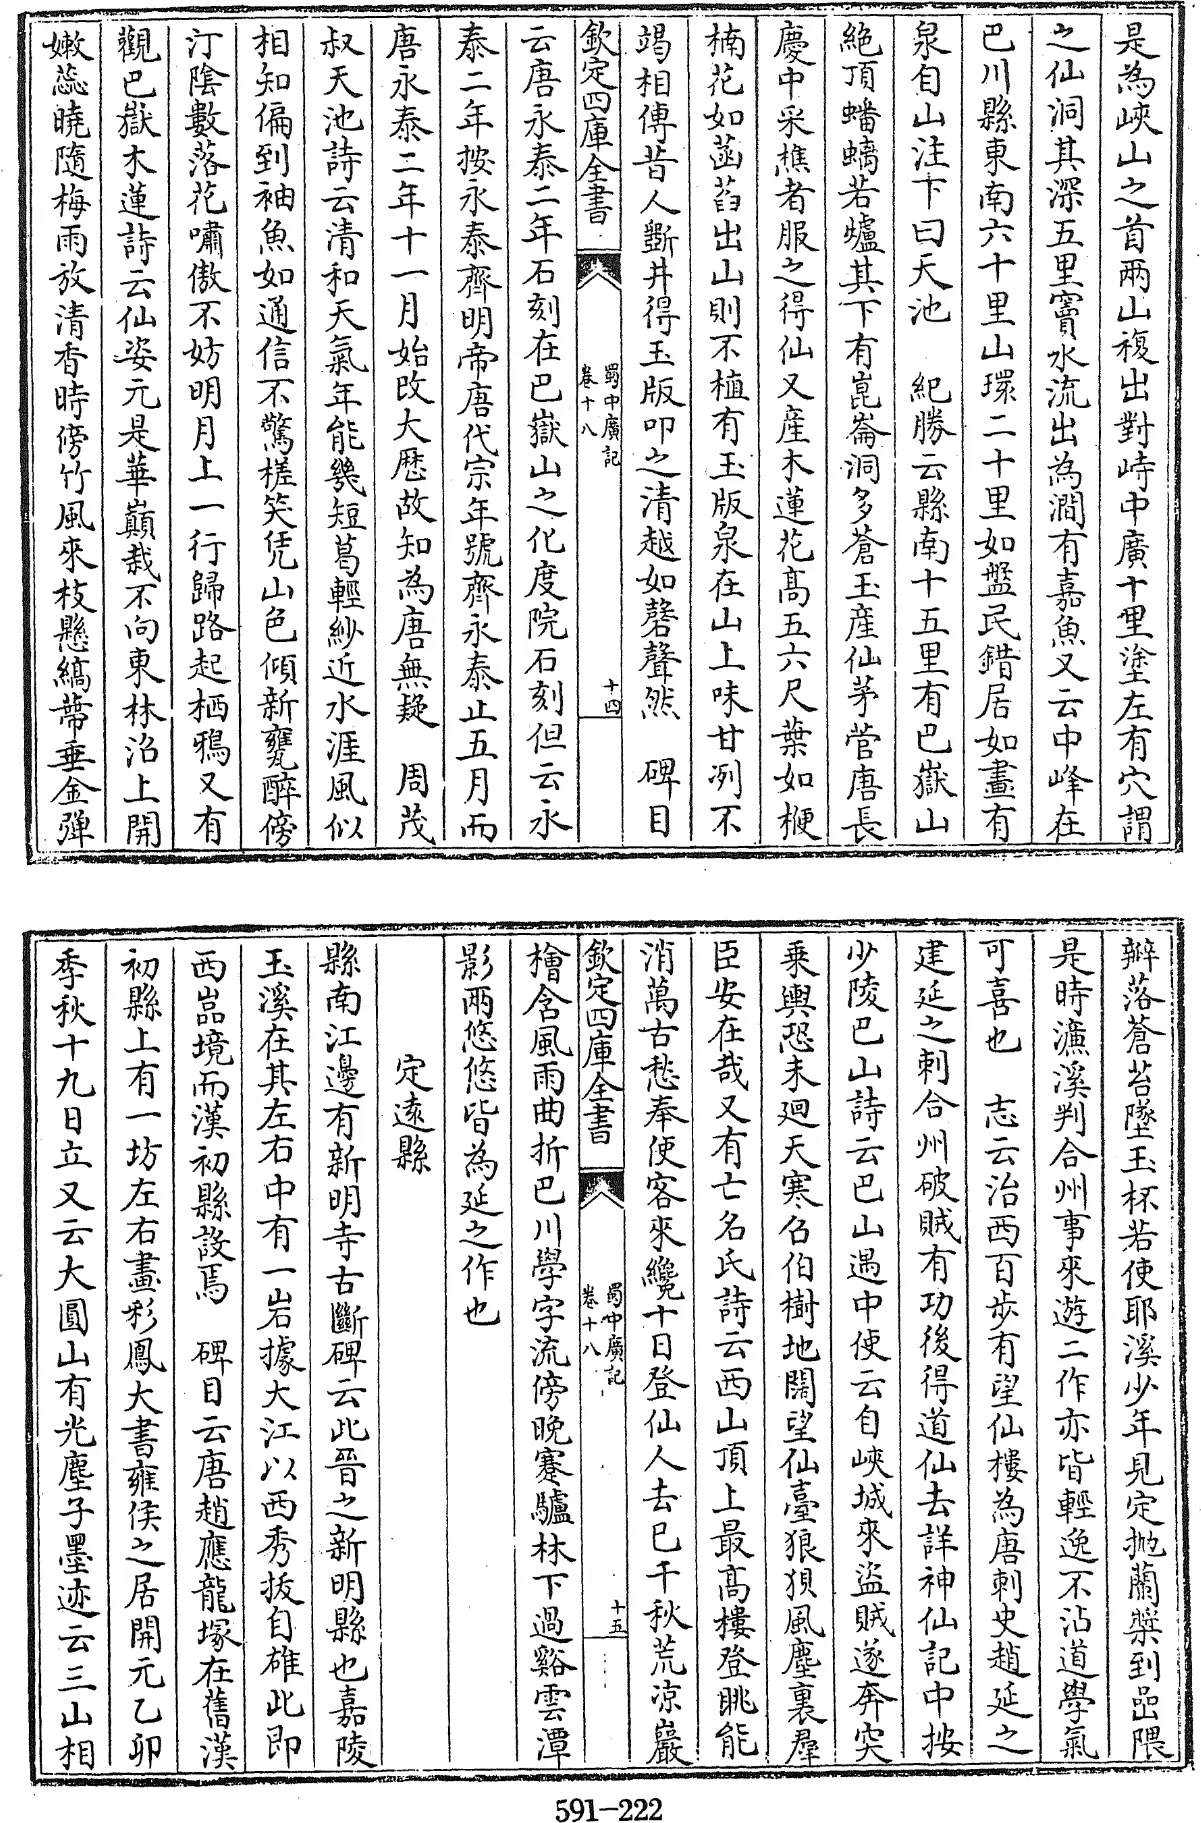 是為峽山之首兩山複出對峙中廣十里塗左有穴謂
之仙洞其深五里竇水流出為澗有嘉魚又云中峰在
巴川縣東南六十里山環二十里如盤民錯居如畫有
泉自山注下曰天池　紀勝云縣南十五里有巴嶽山
絶頂蟠螭若爐其下有崑崙洞多蒼玉産仙茅菅唐長
慶中采樵者服之得仙又産木蓮花髙五六尺葉如楩
楠花如菡萏出山則不植有玉版泉在山上味甘冽不
竭相傳昔人斵井得玉版叩之清越如磬聲然　碑目
欽定四庫全書　蜀中廣記　卷十八　十四
云唐永泰二年石刻在巴嶽山之化度院石刻但云永
泰二年按永泰齊明帝唐代宗年號齊永泰止五月而
唐永泰二年十一月始改大厯故知為唐無疑　周茂
叔天池詩云清和天氣年能幾短葛輕紗近水涯風似
相知偏到袖魚如通信不驚槎笑凭山色傾新甕醉傍
汀陰數落花嘯傲不妨明月上一行歸路起栖鴉又有
觀巴嶽木蓮詩云仙姿元是華巔栽不向東林沼上開
嫩蕊曉隨梅雨放清香時傍竹風來枝懸縞蔕垂金彈
瓣落蒼苔墜玉杯若使耶溪少年見定抛蘭槳到嵒隈
是時濂溪判合州事來遊二作亦皆輕逸不沾道學氣
可喜也　志云治西百步有望仙樓為唐刺史趙延之
建延之刺合州破賊有功後得道仙去詳神仙記中按
少陵巴山詩云巴山遇中使云自峽城來盗賊遂奔突
乗輿恐未廻天寒召伯樹地闊望仙臺狼狽風塵裏羣
臣安在哉又有亡名氏詩云西山頂上最髙樓登眺能
消萬古愁奉使客來纔十日登仙人去已千秋荒凉巖
欽定四庫全書　蜀中廣記　卷十八　十五
檜含風雨曲折巴川學字流傍晚蹇驢林下過谿雲潭
影兩悠悠皆為延之作也
定遠縣
縣南江邊有新明寺古斷碑云此晉之新明縣也嘉陵
玉溪在其左右中有一岩據大江以西秀拔自雄此即
西嵓境而漢初縣設焉　碑目云唐趙應龍塚在舊漢
初縣上有一坊左右畫彩鳳大書雍侯之居開元乙卯
季秋十九日立又云大圓山有光塵子墨迹云三山相
591-222